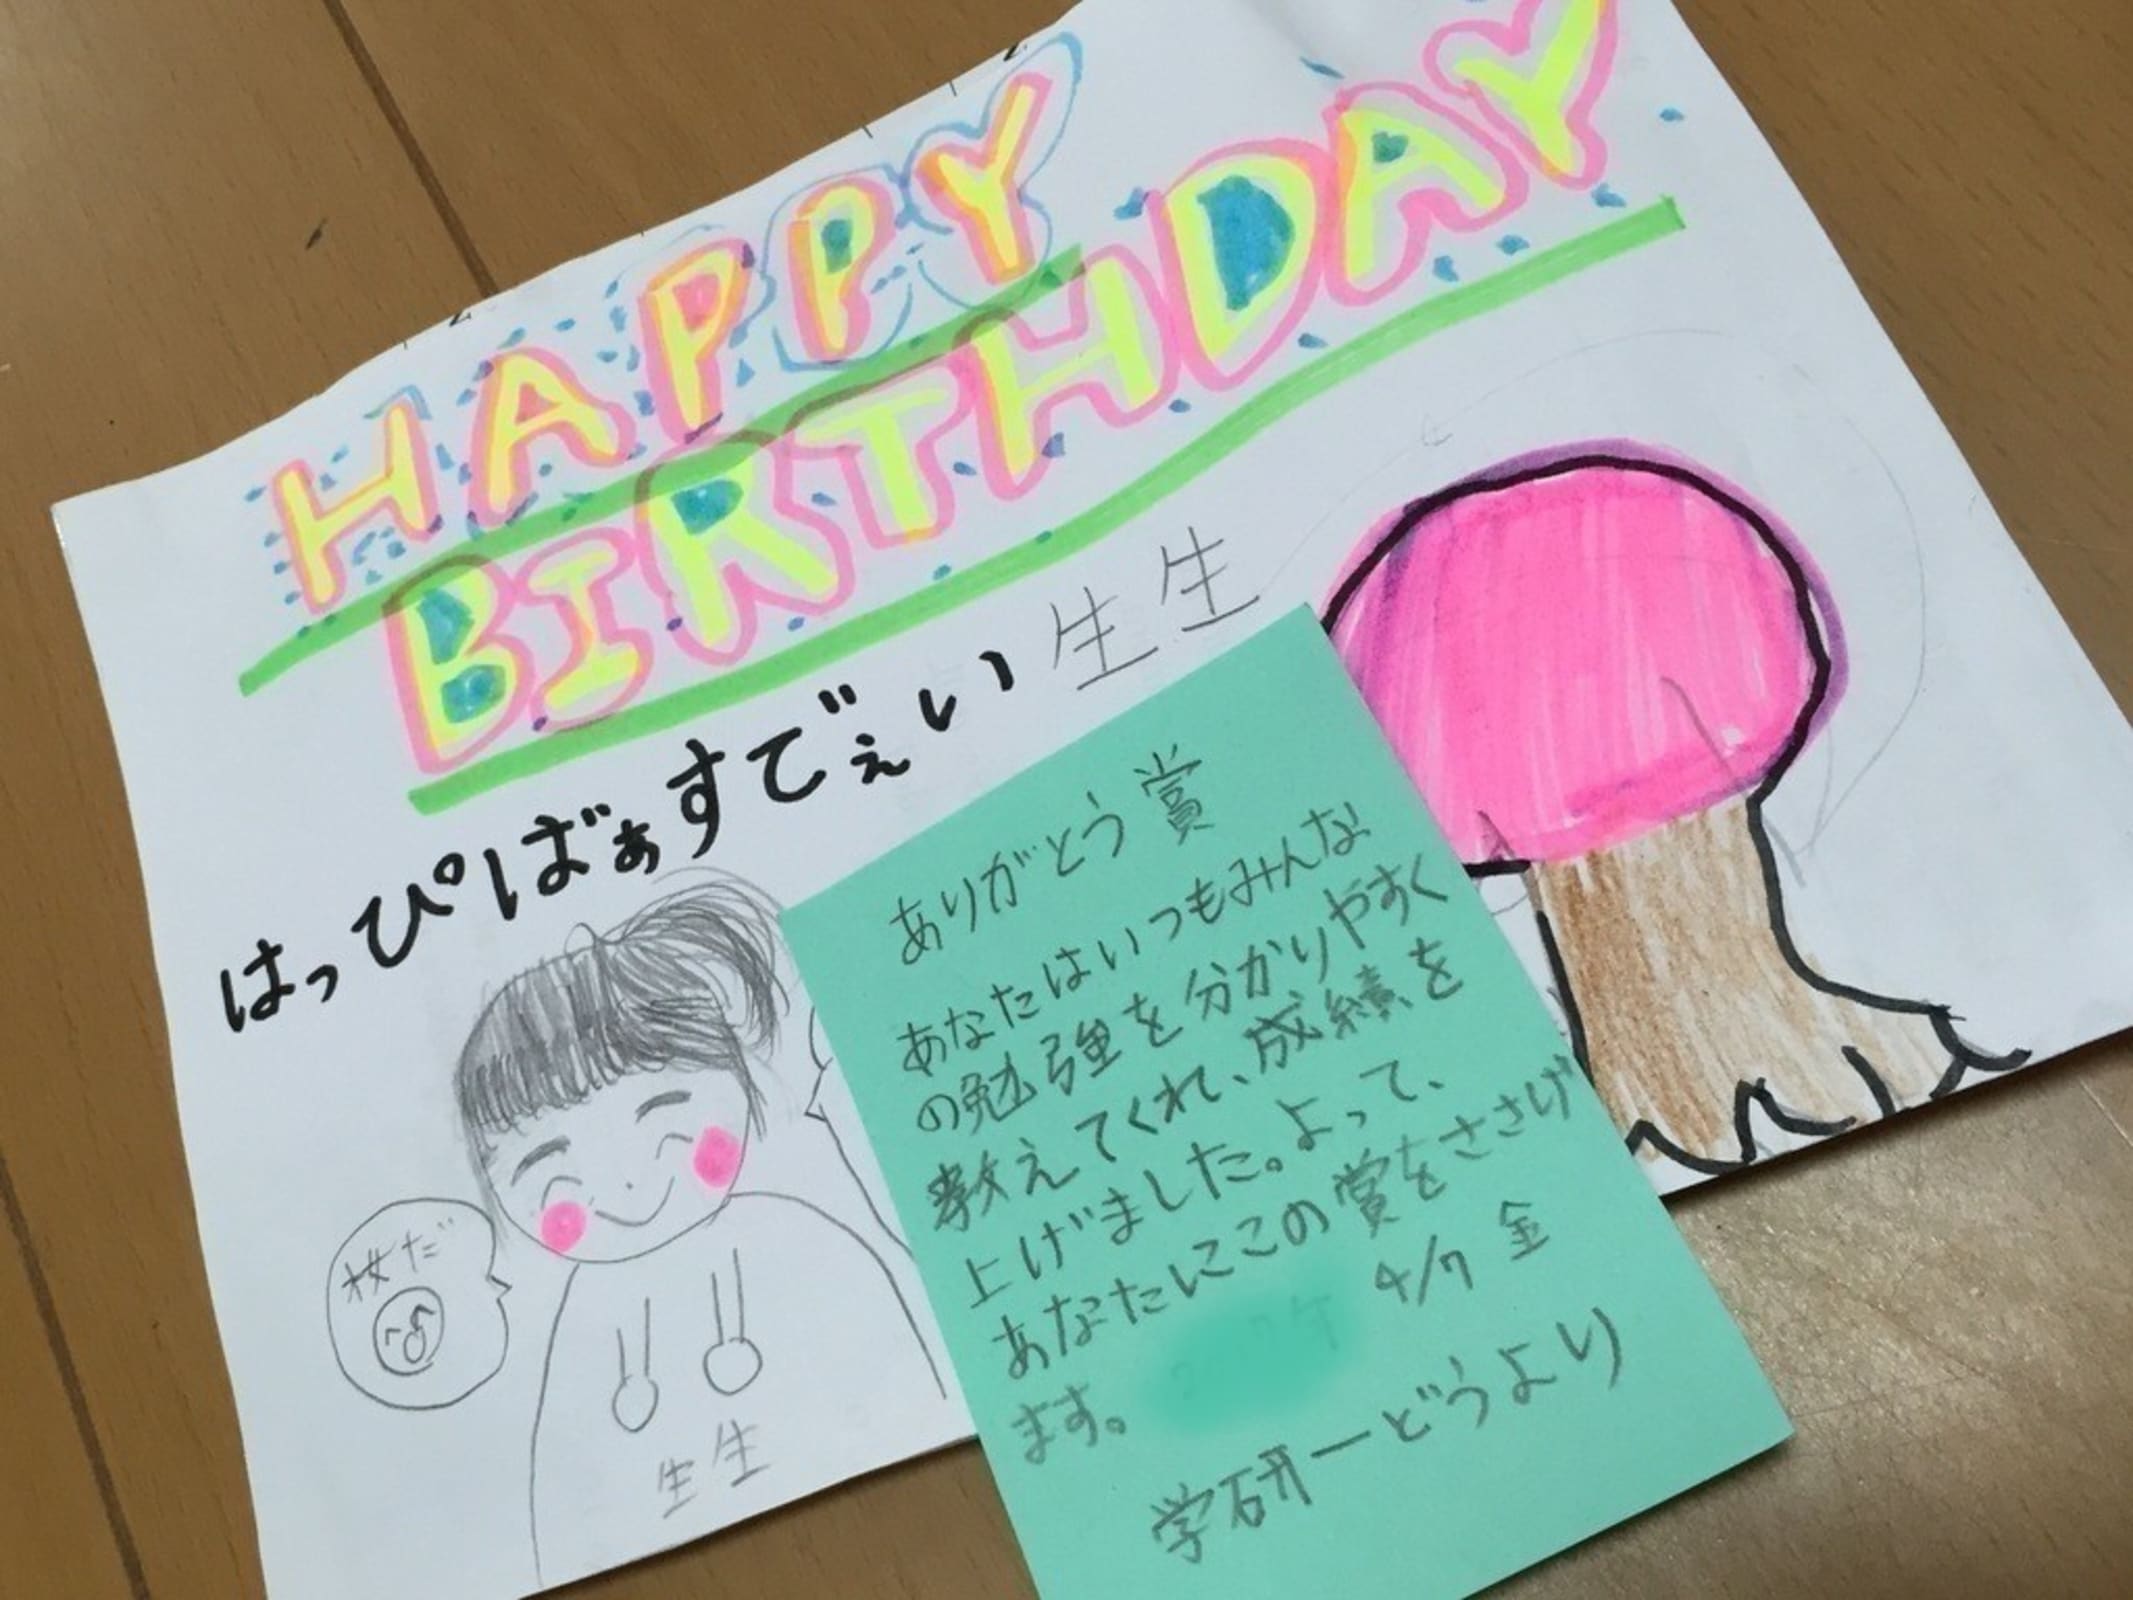 HAPPY
BIRTHDAY
はっぴばぁすでぇい
生生
桜だ
生生
ありがとう賞
あなたはいつもみんな
の勉強を分かりやすく
教えてくれて、成績を
上げました。よって、
あなたにこの賞をささげ
ます。
4/7 金
学研一どうより